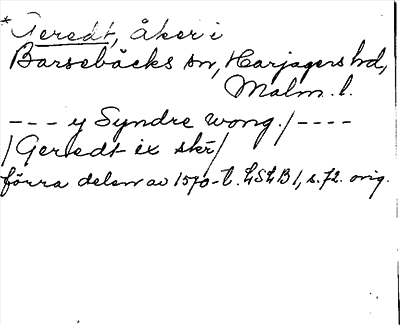 *Geredt, åker i
Barsebäcks sn, Harjagers hd,
Malm. l.
--- y Syndre wong./----
/Geredt ix skr/
förra delen av 1570-t. LSLB 1, s. 72. orig.